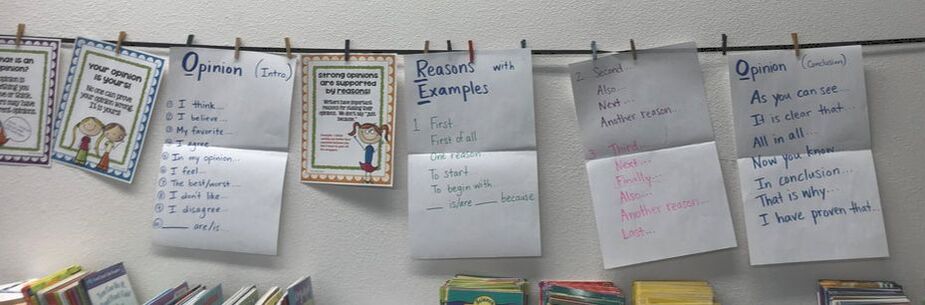 hat is an
opinion?
YOUR OPINION
IS YOURS!
No one can prove
your opinion wrong.
It is yours!
Opinion (Intro)
① I think...
② I believe...
③ My favorite...
④ I agree...
⑤ In my opinion...
⑥ I feel...
⑦ The best/worst...
⑧ I don't like...
⑨ I disagree...
⑩ ____ are/is...
Strong opinions
are supported
by reasons!
Writers have important
reasons for making their
opinions. We don't say "just
because."
Reasons with
Examples
1 First...
First of all
One reason...
To start
To begin with
___ is/are ___ because
2. Second...
Also...
Next...
Another reason...
3. Third...
Next...
Finally...
Also...
Another reason...
Last...
Opinion (Conclusion)
As you can see...
It is clear that...
All in all...
Now you know...
In conclusion...
That is why...
I have proven that...